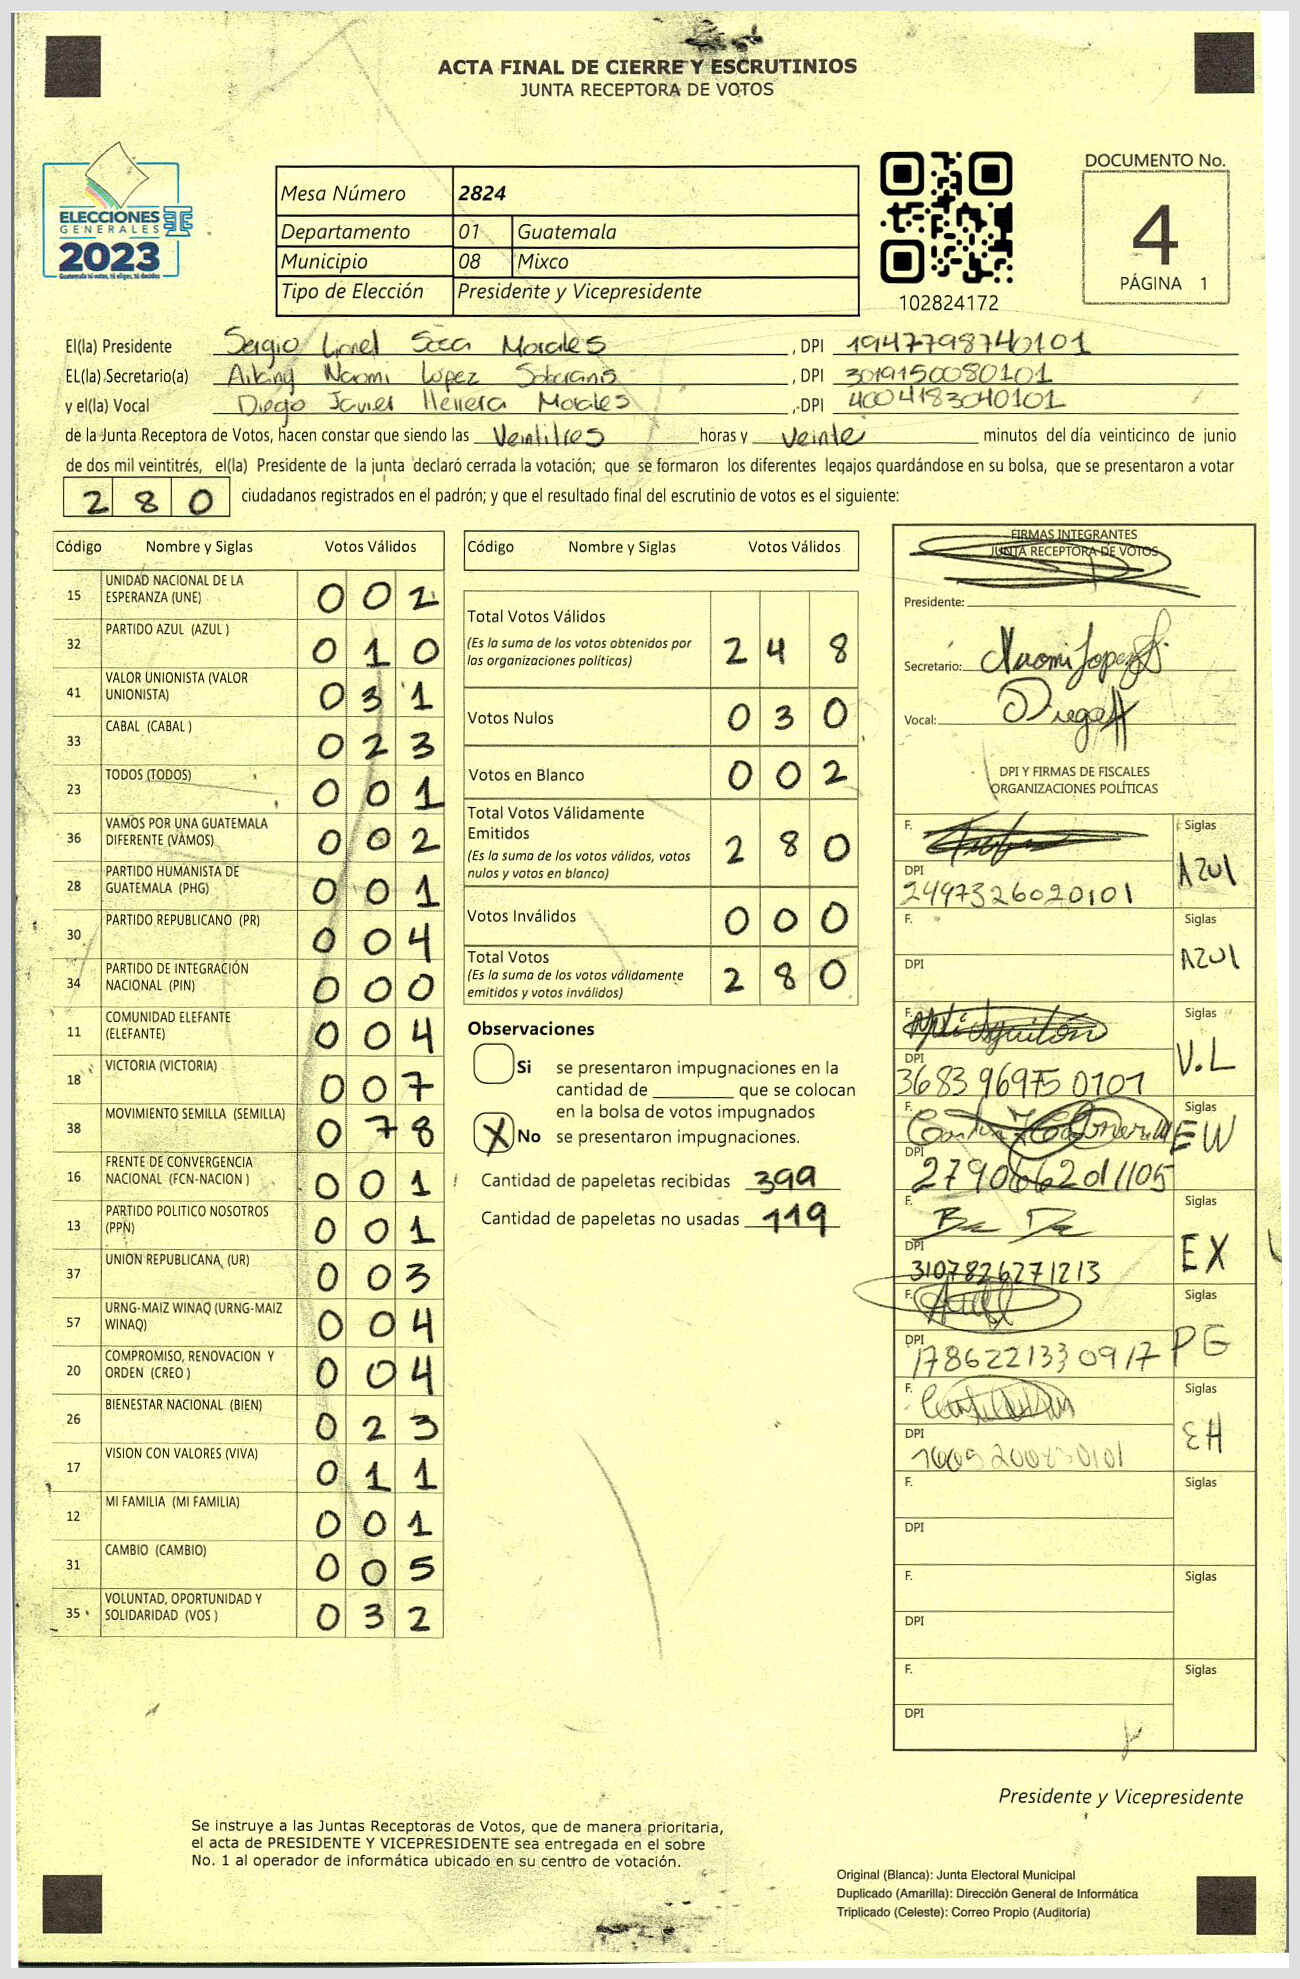 ACTA FINAL DE CIERRE Y ESCRUTINIOS
JUNTA RECEPTORA DE VOTOS
ELECCIONES
GENERALES
2023
Guatemala tú votas, tú eliges, tú decides
Mesa Número 2824
Departamento 01 Guatemala
Municipio 08 Mixco
Tipo de Elección Presidente y Vicepresidente
102824172
DOCUMENTO No.
4
PÁGINA 1
El(la) Presidente Sergio Lionel Soca Morales , DPI 1947798740101
EL(la) Secretario(a) Naomi López Soberanis , DPI 3019150080101
y el(la) Vocal Diego Javier Herrera Morales , DPI 4004183040101
de la Junta Receptora de Votos, hacen constar que siendo las Veintitres horas y veinte minutos del día veinticinco de junio
de dos mil veintitrés, el(la) Presidente de la junta declaró cerrada la votación; que se formaron los diferentes legajos guardándose en su bolsa, que se presentaron a votar
280 ciudadanos registrados en el padrón; y que el resultado final del escrutinio de votos es el siguiente:
Código Nombre y Siglas Votos Válidos
15 UNIDAD NACIONAL DE LA ESPERANZA (UNE) 002
32 PARTIDO AZUL (AZUL ) 010
41 VALOR UNIONISTA (VALOR UNIONISTA) 031
33 CABAL (CABAL ) 023
23 TODOS (TODOS) 001
36 VAMOS POR UNA GUATEMALA DIFERENTE (VAMOS) 002
28 PARTIDO HUMANISTA DE GUATEMALA (PHG) 001
30 PARTIDO REPUBLICANO (PR) 004
34 PARTIDO DE INTEGRACIÓN NACIONAL (PIN) 000
11 COMUNIDAD ELEFANTE (ELEFANTE) 004
18 VICTORIA (VICTORIA) 007
38 MOVIMIENTO SEMILLA (SEMILLA) 078
16 FRENTE DE CONVERGENCIA NACIONAL (FCN-NACION ) 001
13 PARTIDO POLITICO NOSOTROS (PPN) 001
37 UNION REPUBLICANA (UR) 003
57 URNG-MAIZ WINAQ (URNG-MAIZ WINAQ) 004
20 COMPROMISO, RENOVACION Y ORDEN (CREO ) 004
26 BIENESTAR NACIONAL (BIEN) 023
17 VISION CON VALORES (VIVA) 011
12 MI FAMILIA (MI FAMILIA) 001
31 CAMBIO (CAMBIO) 005
35 VOLUNTAD, OPORTUNIDAD Y SOLIDARIDAD (VOS ) 032
Código Nombre y Siglas Votos Válidos
Total Votos Válidos
(Es la suma de los votos obtenidos por las organizaciones políticas) 248
Votos Nulos 030
Votos en Blanco 002
Total Votos Válidamente Emitidos
(Es la suma de los votos válidos, votos nulos y votos en blanco) 280
Votos Inválidos 000
Total Votos
(Es la suma de los votos válidamente emitidos y votos inválidos) 280
Observaciones
Si se presentaron impugnaciones en la
cantidad de ________ que se colocan
en la bolsa de votos impugnados
X No se presentaron impugnaciones.
Cantidad de papeletas recibidas 399
Cantidad de papeletas no usadas 119
FIRMAS INTEGRANTES
JUNTA RECEPTORA DE VOTOS
Presidente:
Secretario: Naomi Lopez S.
Vocal: Diego H
DPI Y FIRMAS DE FISCALES
ORGANIZACIONES POLÍTICAS
F. Siglas AZUL
DPI 2497326020101
F. Siglas AZUL
DPI
F. Siglas V.L
DPI 3683969750101
F. Siglas EW
DPI 2790662011105
F. Siglas EX
DPI 3107826271213
F. Siglas PG
DPI 1786221330917
F. Siglas EH
DPI
F. Siglas
DPI
F. Siglas
DPI
F. Siglas
DPI
Presidente y Vicepresidente
Se instruye a las Juntas Receptoras de Votos, que de manera prioritaria,
el acta de PRESIDENTE Y VICEPRESIDENTE sea entregada en el sobre
No. 1 al operador de informática ubicado en su centro de votación.
Original (Blanca): Junta Electoral Municipal
Duplicado (Amarilla): Dirección General de Informática
Triplicado (Celeste): Correo Propio (Auditoría)